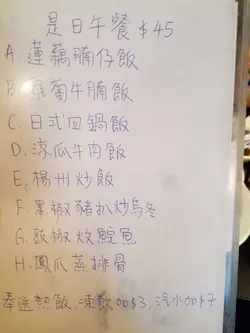 是日午餐 $45
A. 蓮藕腩仔飯
B. 蘿蔔牛腩飯
C. 日式回鍋飯
D. 涼瓜牛肉飯
E. 楊州炒飯
F. 黑椒豬扒炒烏冬
G. 豉椒炆鯇魚
H. 鳳爪蒸排骨
奉送熱飲. 凍飲加$3, 汽水加$7